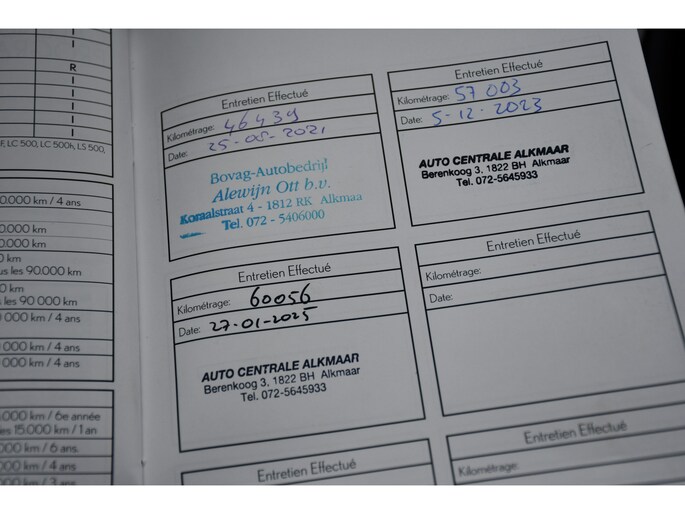 I
R
I
I
I
I
I
F, LC 500, LC 500h, LS 500,
0.000 km / 4 ans
0.000 km
0.000 km
0 km
us les 90.000 km
0 km
s les 90 000 km
000 km / 4 ans
000 km / 5 ans
000 km / 4 ans
.000 km / 6e année
les 15.000 km / 1 an
000 km / 6 ans
000 km / 4 ans
000 km / 3 ans
Entretien Effectué
Kilométrage: 46439
Date: 25-05-2021
Bovag-Autobedrijf
Alewijn Ott b.v.
Koraalstraat 4 - 1812 RK Alkmaa
Tel. 072 - 5406000
Entretien Effectué
Kilométrage: 57003
Date: 5-12-2023
AUTO CENTRALE ALKMAAR
Berenkoog 3, 1822 BH Alkmaar
Tel. 072-5645933
Entretien Effectué
Kilométrage: 60056
Date: 27-01-2025
AUTO CENTRALE ALKMAAR
Berenkoog 3, 1822 BH Alkmaar
Tel. 072-5645933
Entretien Effectué
Kilométrage:
Date:
Entretien Effectué
Entretien Effectué
Kilométrage: